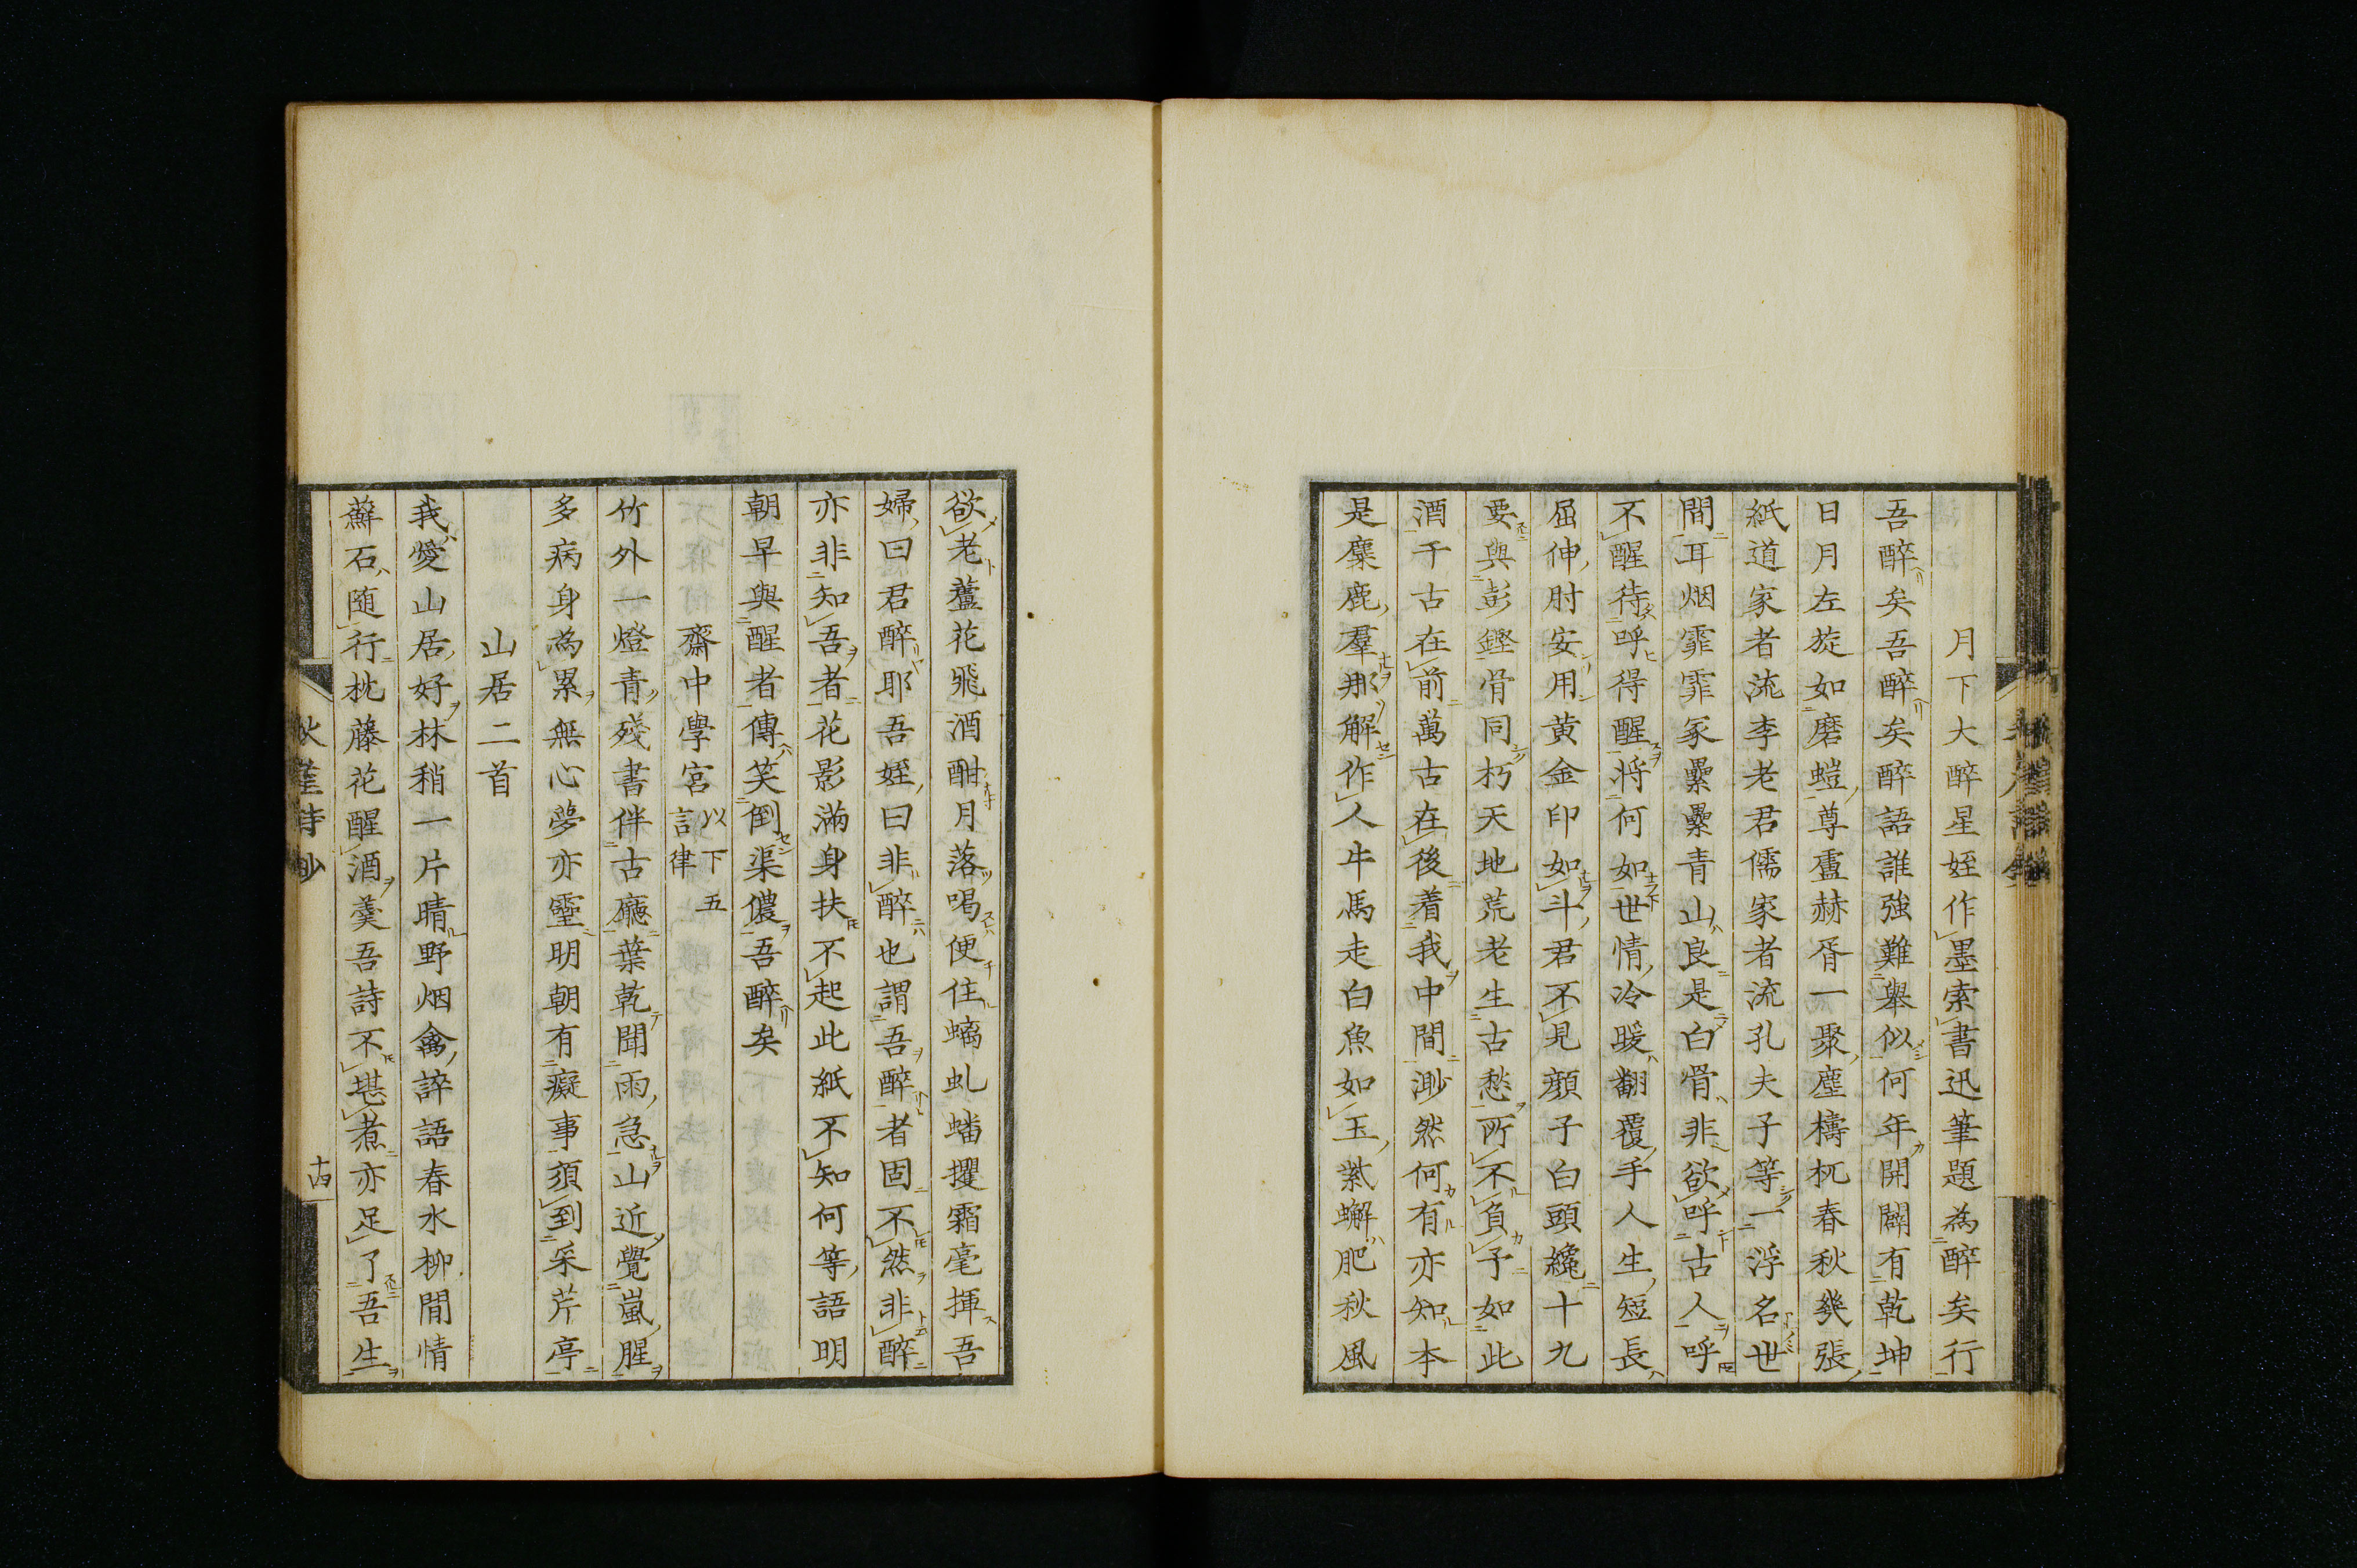 月下大醉星姪作墨索書迅筆題為醉矣行
吾醉矣吾醉矣醉語誰強難舉似何年開闢有乾坤
日月左旋如磨螘尊盧赫胥一聚塵檮杌春秋幾張
紙道家者流李老君儒家者流孔夫子等一浮名世
間耳烟霏霏冢纍纍青山良是白骨非欲呼古人呼
不醒待呼得醒將何如世情冷暖翻覆手人生短長
屈伸肘安用黃金印如斗君不見顏子白頭纔十九
要與彭鏗骨同朽天地荒老生古愁所不負予如此
酒千古在前萬古在後着我中間渺然何有亦知本
是麋鹿羣那解作人牛馬走白魚如玉紫蠏肥秋風
欲老蘆花飛酒酣月落喝便住螭虬蟠攫霜毫揮吾
婦曰君醉耶吾姪曰非醉也謂吾醉者固不然非醉
亦非知吾者花影滿身扶不起此紙不知何等語明
朝早與醒者傳笑倒渠儂吾醉矣
齋中學宮以下五言律
竹外一燈青殘書伴古廳葉乾聞雨急山近覺嵐腥
多病身為累無心夢亦靈明朝有癡事須到采芹亭
山居二首
我愛山居好林稍一片晴野烟禽誶語春水柳閒情
蘚石随行枕藤花醒酒羹吾詩不堪煮亦足了吾生
秋崖詩鈔
十四